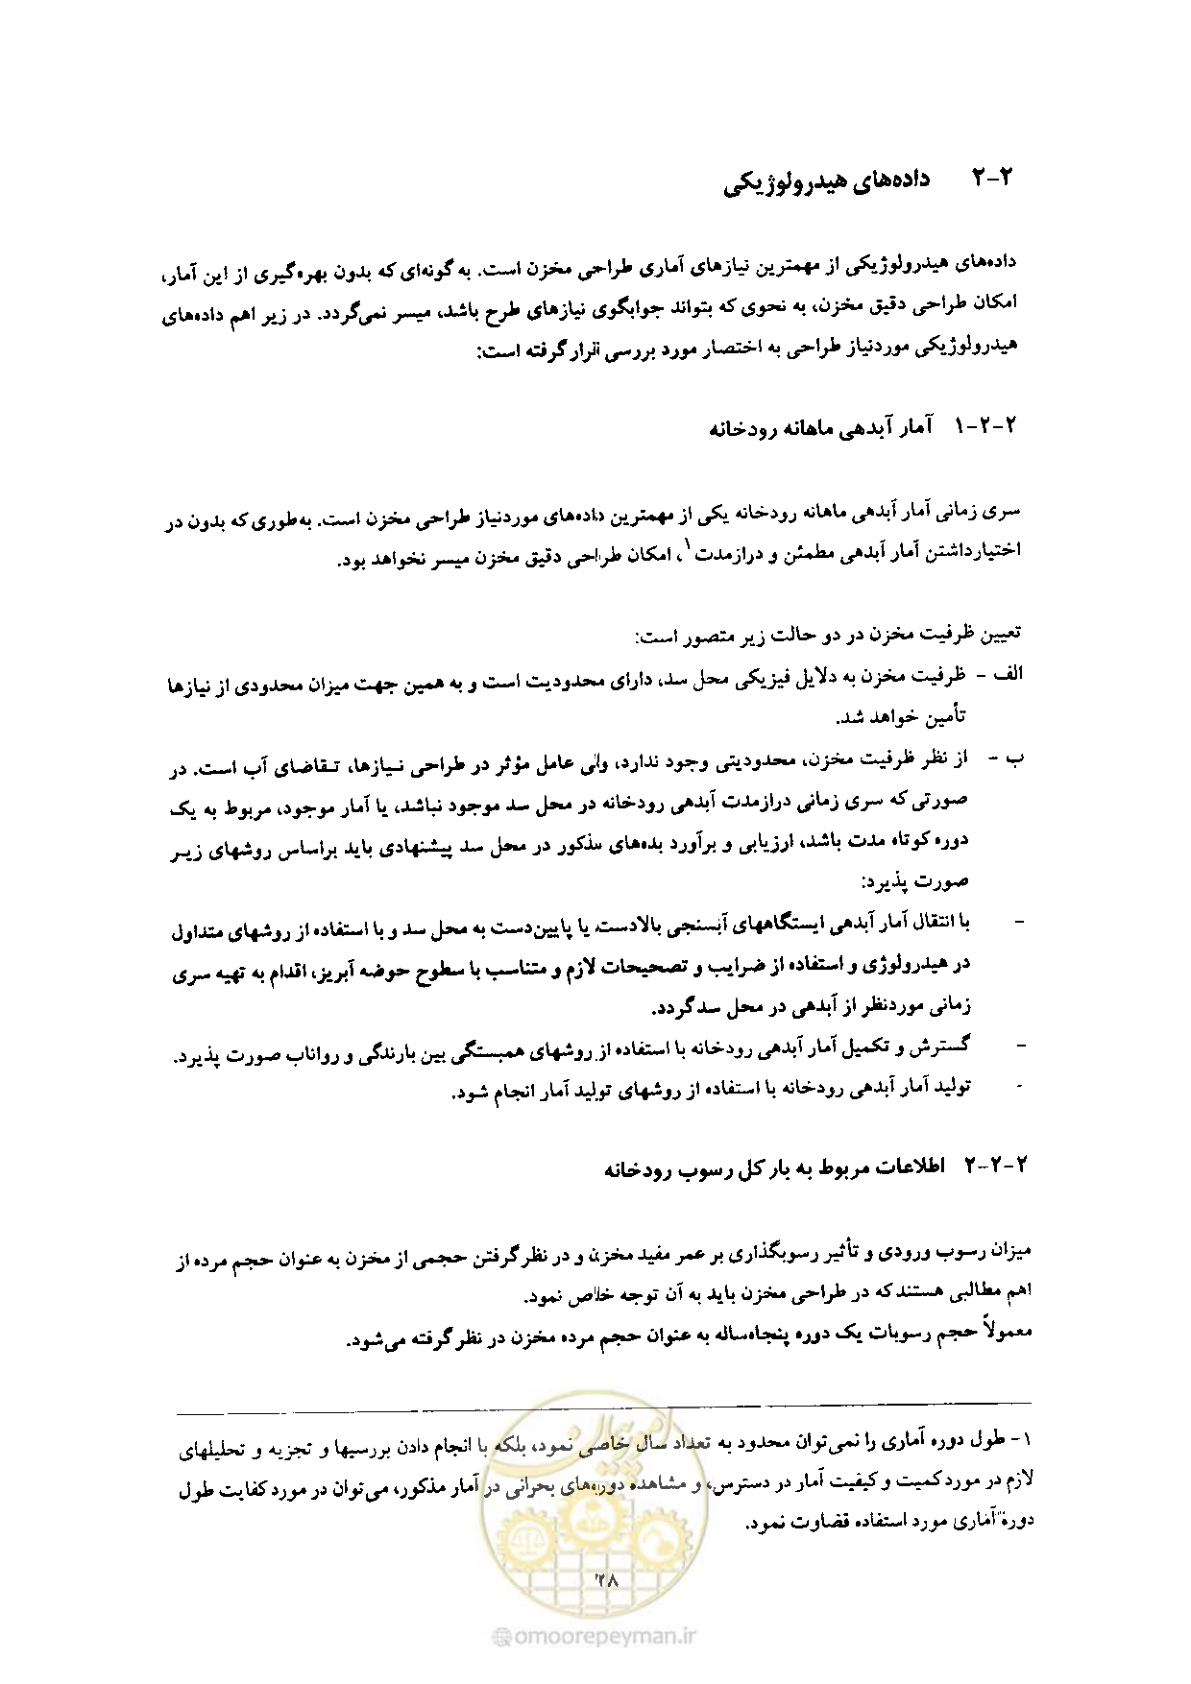 ۲-۲ داده‌های هیدرولوژیکی
داده‌های هیدرولوژیکی از مهمترین نیازهای آماری طراحی مخزن است. به گونه‌ای که بدون بهره‌گیری از این آمار،
امکان طراحی دقیق مخزن، به نحوی که بتواند جوابگوی نیازهای طرح باشد، میسر نمی‌گردد. در زیر اهم داده‌های
هیدرولوژیکی موردنیاز طراحی به اختصار مورد بررسی قرار گرفته است:
۱-۲-۲ آمار آبدهی ماهانه رودخانه
سری زمانی آمار آبدهی ماهانه رودخانه یکی از مهمترین داده‌های موردنیاز طراحی مخزن است. به‌طوری که بدون در
اختیارداشتن آمار آبدهی مطمئن و درازمدت۱، امکان طراحی دقیق مخزن میسر نخواهد بود.
تعیین ظرفیت مخزن در دو حالت زیر متصور است:
الف - ظرفیت مخزن به دلایل فیزیکی محل سد، دارای محدودیت است و به همین جهت میزان محدودی از نیازها
تأمین خواهد شد.
ب - از نظر ظرفیت مخزن، محدودیتی وجود ندارد، ولی عامل مؤثر در طراحی نیازها، تقاضای آب است. در
صورتی که سری زمانی درازمدت آبدهی رودخانه در محل سد موجود نباشد، یا آمار موجود، مربوط به یک
دوره کوتاه مدت باشد، ارزیابی و برآورد بده‌های مذکور در محل سد پیشنهادی باید براساس روشهای زیر
صورت پذیرد:
- با انتقال آمار آبدهی ایستگاههای آبسنجی بالادست یا پایین‌دست به محل سد و با استفاده از روشهای متداول
در هیدرولوژی و استفاده از ضرایب و تصحیحات لازم و متناسب با سطوح حوضه آبریز، اقدام به تهیه سری
زمانی موردنظر از آبدهی در محل سد گردد.
- گسترش و تکمیل آمار آبدهی رودخانه با استفاده از روشهای همبستگی بین بارندگی و رواناب صورت پذیرد.
- تولید آمار آبدهی رودخانه با استفاده از روشهای تولید آمار انجام شود.
۲-۲-۲ اطلاعات مربوط به بار کل رسوب رودخانه
میزان رسوب ورودی و تأثیر رسوبگذاری بر عمر مفید مخزن و در نظر گرفتن حجمی از مخزن به عنوان حجم مرده از
اهم مطالبی هستند که در طراحی مخزن باید به آن توجه خاص نمود.
معمولاً حجم رسوبات یک دوره پنجاه‌ساله به عنوان حجم مرده مخزن در نظر گرفته می‌شود.
۱- طول دوره آماری را نمی‌توان محدود به تعداد سال خاصی نمود، بلکه با انجام دادن بررسیها و تجزیه و تحلیلهای
لازم در مورد کمیت و کیفیت آمار در دسترس، و مشاهده دوره‌های بحرانی در آمار مذکور، می‌توان در مورد کفایت طول
دوره آماری مورد استفاده قضاوت نمود.
۲۸
امور پیمان
@omoorepeyman.ir